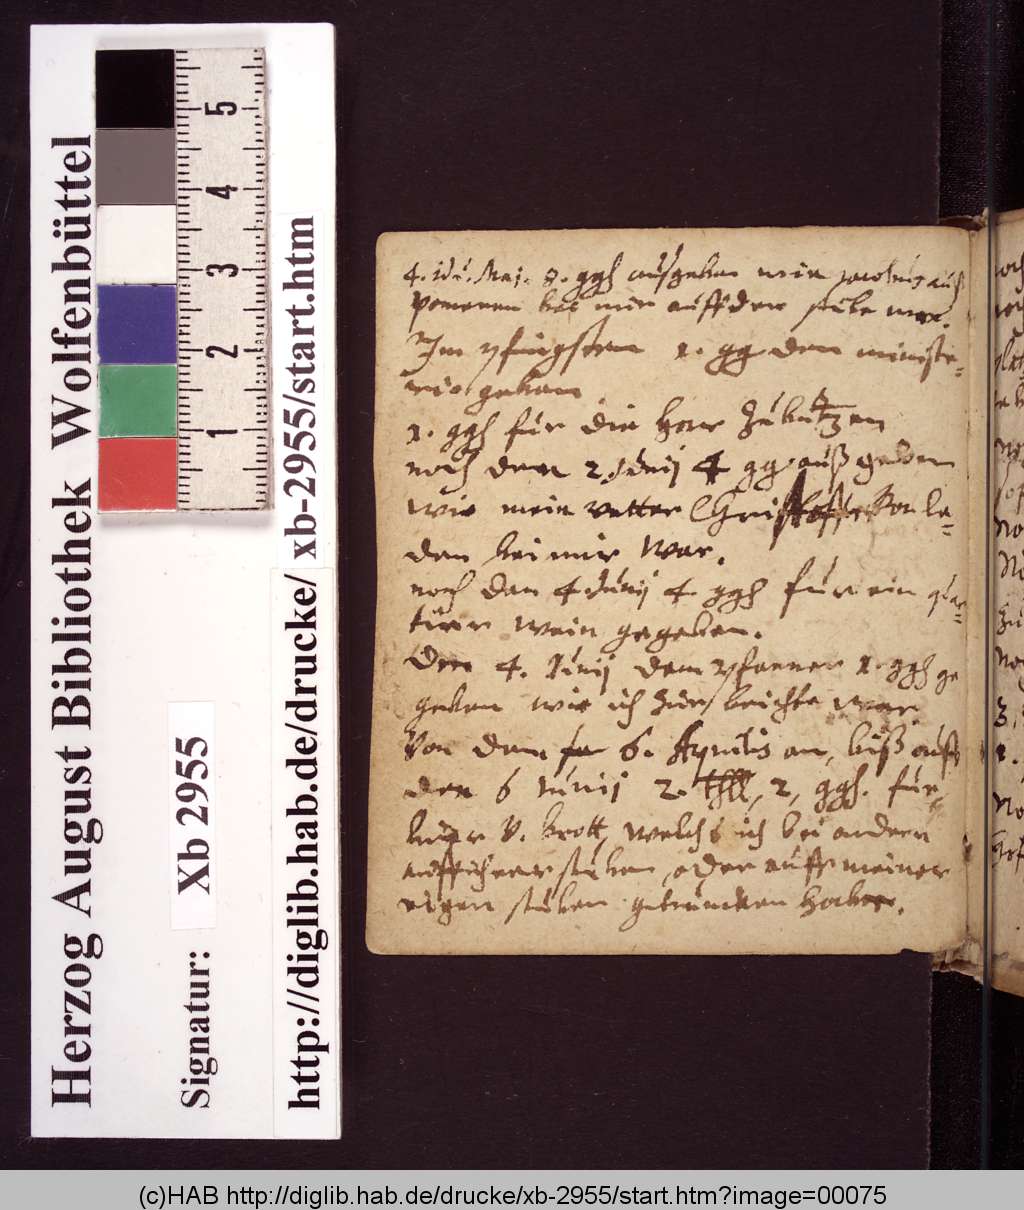 Herzog August Bibliothek Wolfenbüttel
Signatur: Xb 2955
http://diglib.hab.de/drucke/xb-2955/start.htm
1 2 3 4 5
4. idu. Maj. 8. ggl außgeben wie Jacobus auß
Pomeren bei mir auff der stube war.
Im pfingsten 1. gg den ministe=
rio geben
1. ggl für die Har zu butzen
noch den 2. Junij 4 gg außgeben
wie mein vetter Christoffer von la=
den bei mir war.
noch den 4 Junij 4 ggl für ein quar=
tier wein gegeben.
Den 4. Junij dem pfarner 1. ggl ge
geben wie ich zur beichte war
Von dem 6. Aprilis an, biß auff
den 6 Junij 2. thll, 2, ggl. für
bier v. brott, welchs ich bei andern
auff ihrer stuben, oder auff meiner
eigen stuben getruncken habe.
(c)HAB http://diglib.hab.de/drucke/xb-2955/start.htm?image=00075